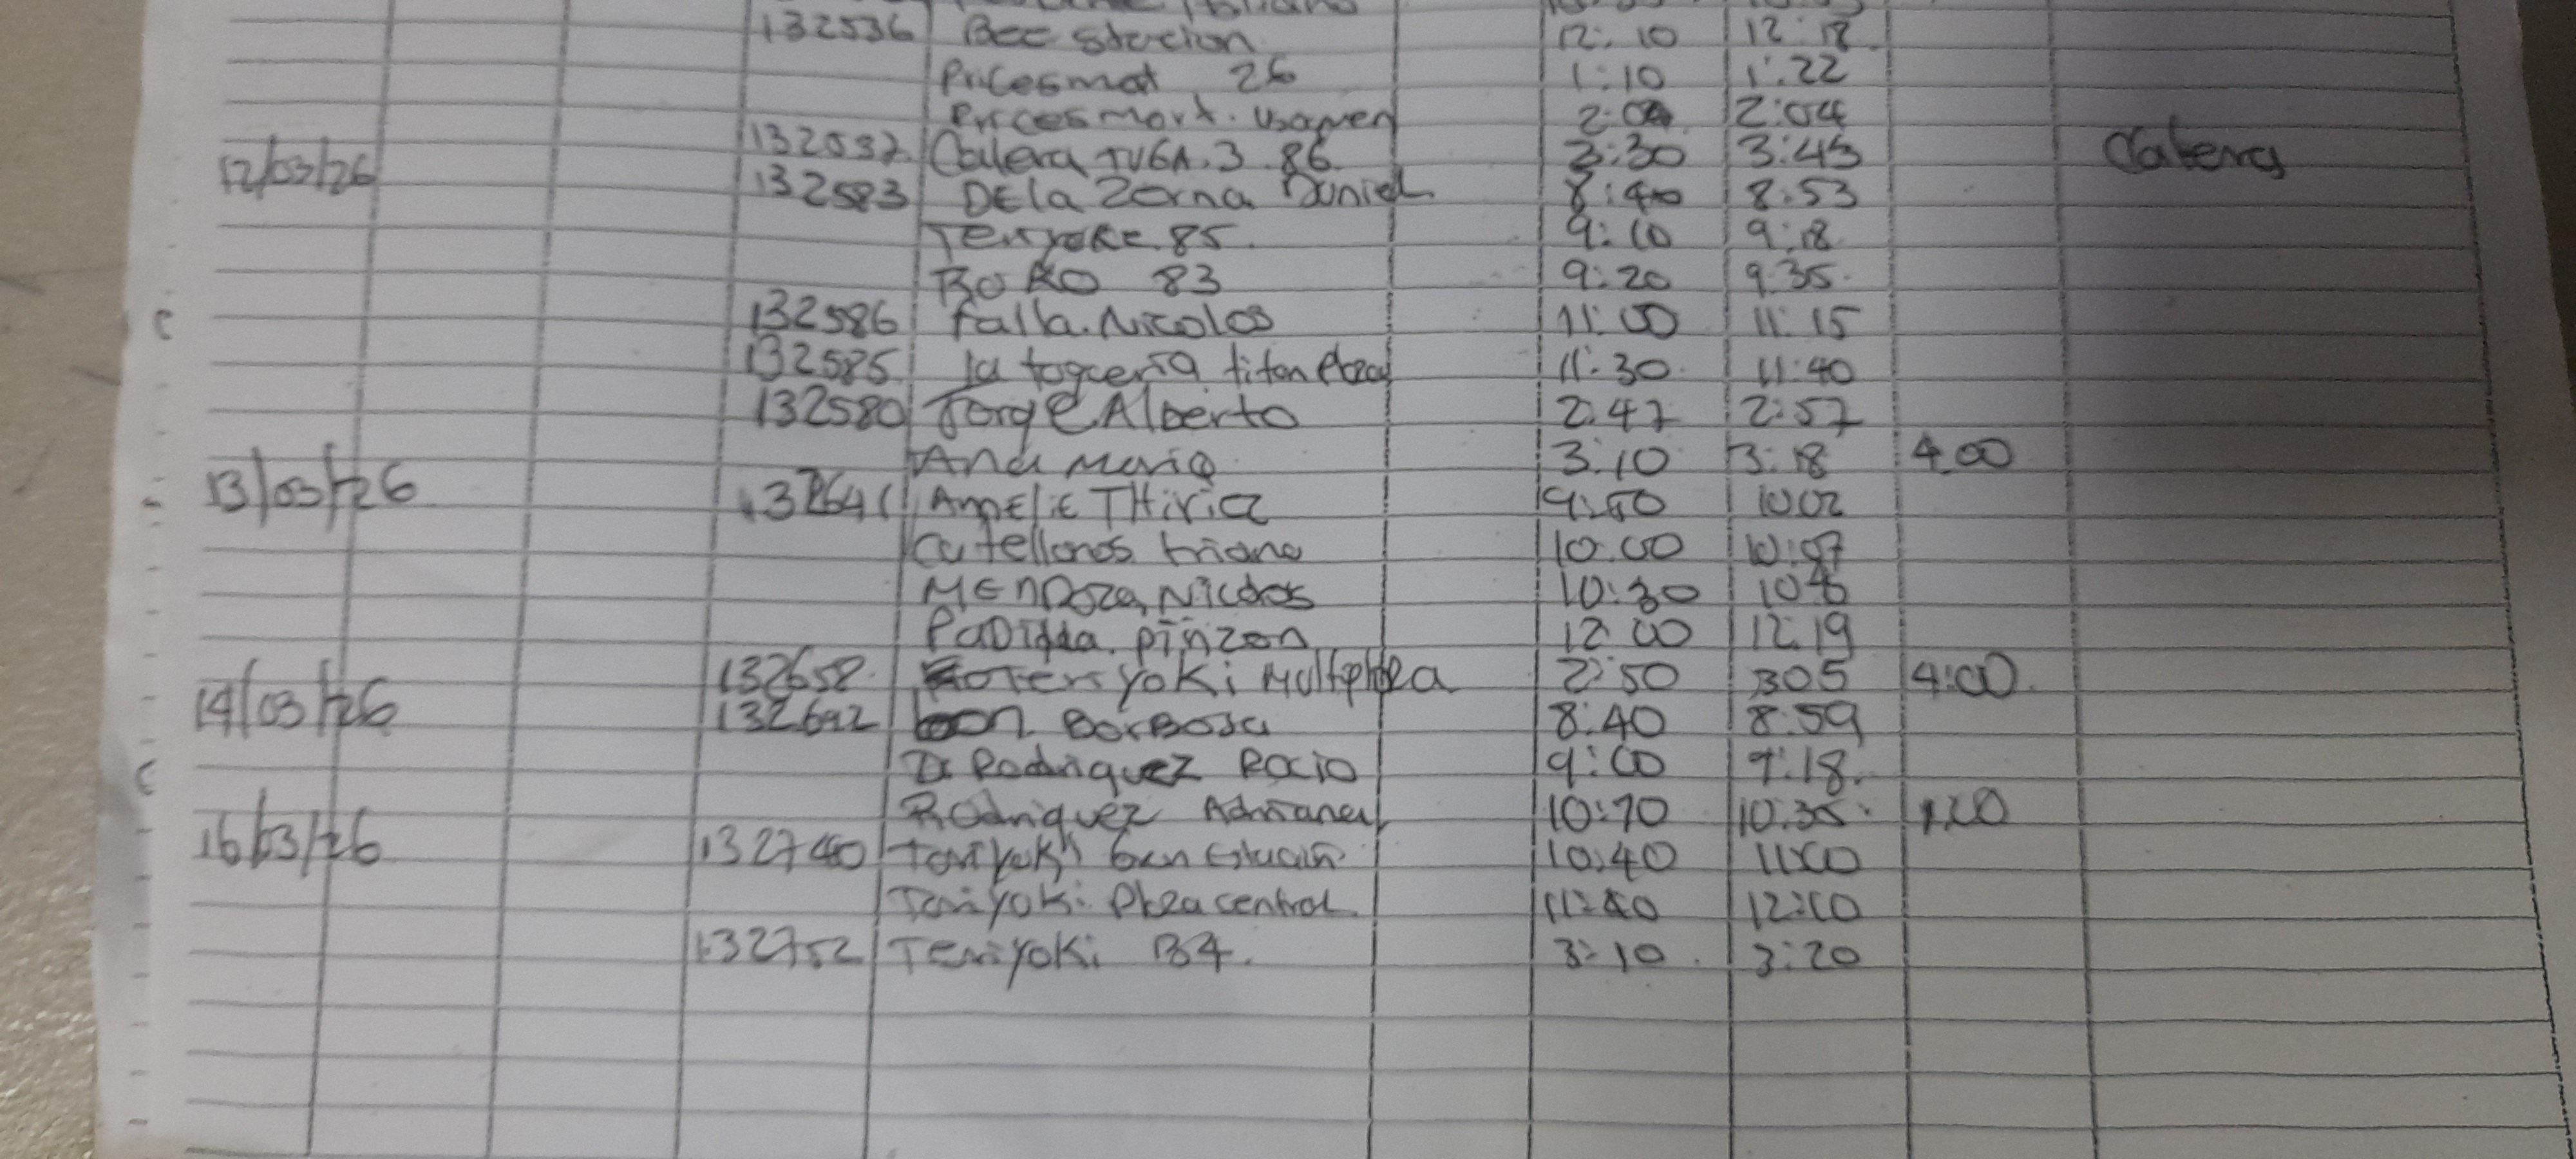 132536 Bee stacion 12:10 12:18
Pricesmat 26 1:10 1:22
Pricesmart. Usaquen 2:00 2:04
132537 Calera TUGA.3 86 3:30 3:45 Calera
12/03/26 132583 DEla Zorna Daniel 8:40 8:53
TeriyaKE 85 9:10 9:18
BoKO 83 9:20 9:35
132586 Falla. Nicolos 11:00 11:15
132585 la toqueria titan Plaza 11:30 11:40
132580 Jorge Alberto 2:47 2:57
Ana Maria 3:10 3:18 4.00
13/03/26 132641 AmElie THiria 9:50 1002
Catellonos triana 10:00 10:07
MEnDoza, Nicolos 10:30
pinzon 12:00 12:19
132658 Teriyoki Multiplaza 2:50 305 4:00
14/03/26 132692 Borbosa 8:40 8:59
D. Rodriguez Rocio 9:00 9:18
Rodriguez Adriana 10:20 10:35
16/03/26 132740 Teriyoki 10:40 11:00
Teriyoki Plaza central 11:40 12:10
132752 Teriyoki B4. 3:10 3:20